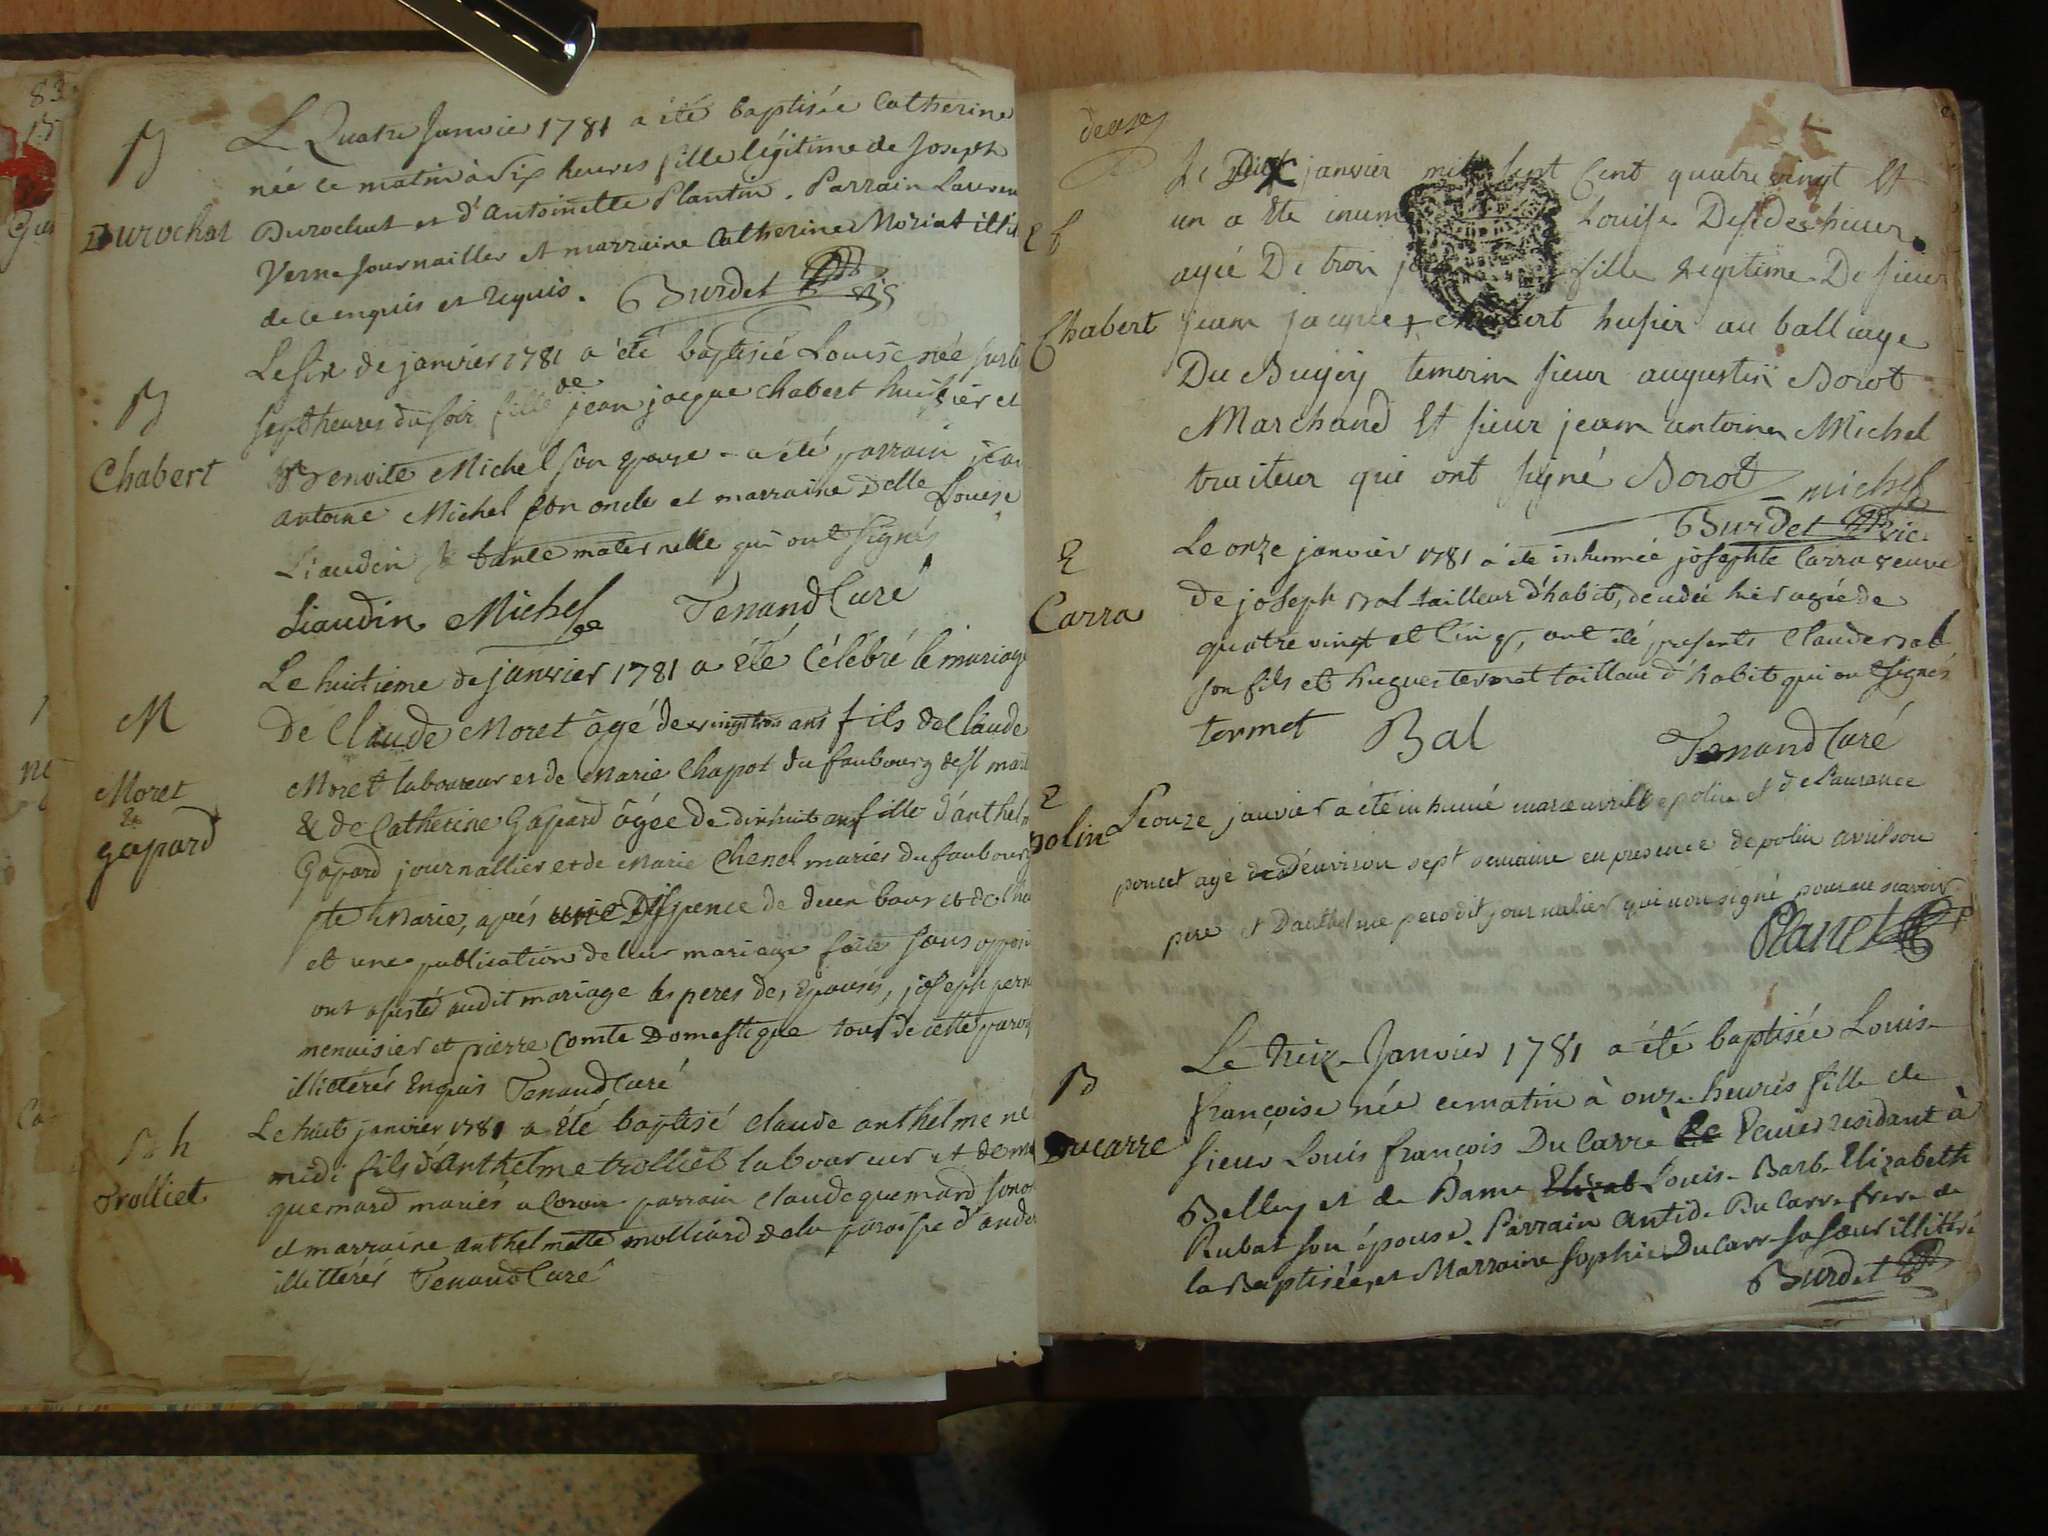 83
B
Durochat
Le Quatre Janvier 1781 a été baptisée Catherine
née ce matin à six heures fille légitime de Joseph
Durochat et d'Antoinette Plantin. Parrain Lauren
Verne journaillier et marraine Catherine Moriat illit
de ce enquis et requis. Burdet
B
Chabert
Le six de janvier 1781 a été baptisée Louise née
sept heures du soir fille de jean jacque chabert huissier et
Benoite Michel son epouse a été parrain jean
antoine Michel son oncle et marraine Delle Louise
Liaudin tante maternelle qui ont signés
Liaudin Michel Tenand Curé
M
Moret
&
gapard
Le huitieme de janvier 1781 a été célébré le mariage
De Claude Moret âgé de vingttrois ans fils de Claude
Moret laboureur et de Marie Chapot du faubourg de st mar
& de Catherine Gapard âgée de dixhuit ans fille d'anthel
Gapard journallier et de Marie Chenel mariés du faubourg
ste Marie, aprés une Dispence de deux bans et de
et une publication de leur mariage faite sans oppos
ont assisté audit mariage les peres des Epousés, joseph pern
menuisier et pierre Comte Domestique tous de cette parois
illittérés Enquis Tenand Curé
B h
Trolliet
Le huit janvier 1781 a été baptisé claude anthelme né
midi fils d'Anthelme trolliet laboureur et de
quemard mariés a Coron parrain claude quemard son
et marraine anthelmette molliard de la paroisse d'andert
illittérés Tenand Curé
deuxe
E
Chabert
Le Dix janvier mil sept Cent quatre vingt Et
un a Ete inum Louise Desidee hiuer
agée De trois fille legitime De sieur
jean jacque chabert husier au balliage
Du Bugey temoin sieur augustin Borot
Marchand Et sieur jean antoine Michel
traiteur qui ont signé Borot michel
Burdet vic.
E
Carra
Le onze janvier 1781 a été inhumée josephte Carra veuve
de joseph Bal tailleur d'habits, decedée hier agée de
quatre vingt et cinq, ont été presents Claude Bal
son fils et hugues termet tailleur d'habits qui ont signés
termet Bal Tenand Curé
E
polin
Le onze janvier a été inhumé
poncet agé d'environ sept semaine en presence de polin avril son
pere et Danthelme perodit journalier qui non signé pour ne scavoir
Planet
B
Ducarre
Le treize Janvier 1781 a été baptisée Louise
françoise née ce matin à onze heures fille de
sieur Louis françois Du Carre Ecuier residant à
Belley et de Dame Elizab Louise Barbe Elizabeth
Rubat son épouse. Parrain Antide Du Carre frere de
la Baptisée, et Marraine Sophie Du Carre sa soeur illitéré
Burdet